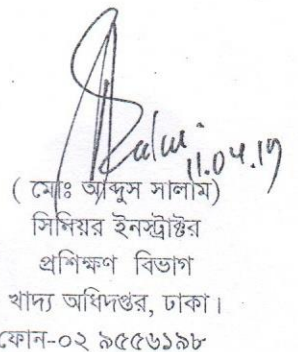 11.04.19
( মোঃ আব্দুস সালাম)
সিনিয়র ইনস্ট্রাক্টর
প্রশিক্ষণ বিভাগ
খাদ্য অধিদপ্তর, ঢাকা।
ফোন-০২ ৯৫৫৬১৯৮